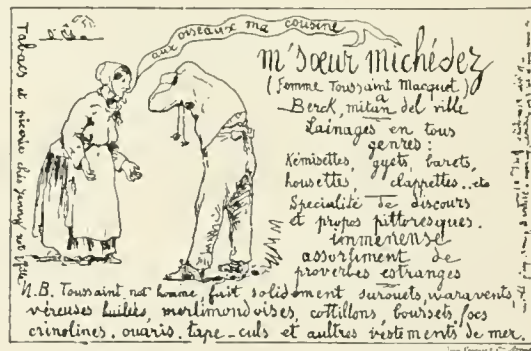 aux oiseaux ma cousine
m' sœur michédez
(Femme Toussaint Macquet)
à
Berck, mitan del ville
Lainages en tous
genres:
Kémisettes, gyets, barets,
housettes, clappettes..etc
Spécialité de discours
et propos pittoresques.
immenense
assortiment de
proverbes estranges
N.B. Toussaint, not homme, fait solidement surouets, waravents,
véreuses huilées, merlimondoises, cottillons, boursets, focs
crinolines, ouaris, tape-culs et autres vêtements de mer.
Tabacs et picerie chés